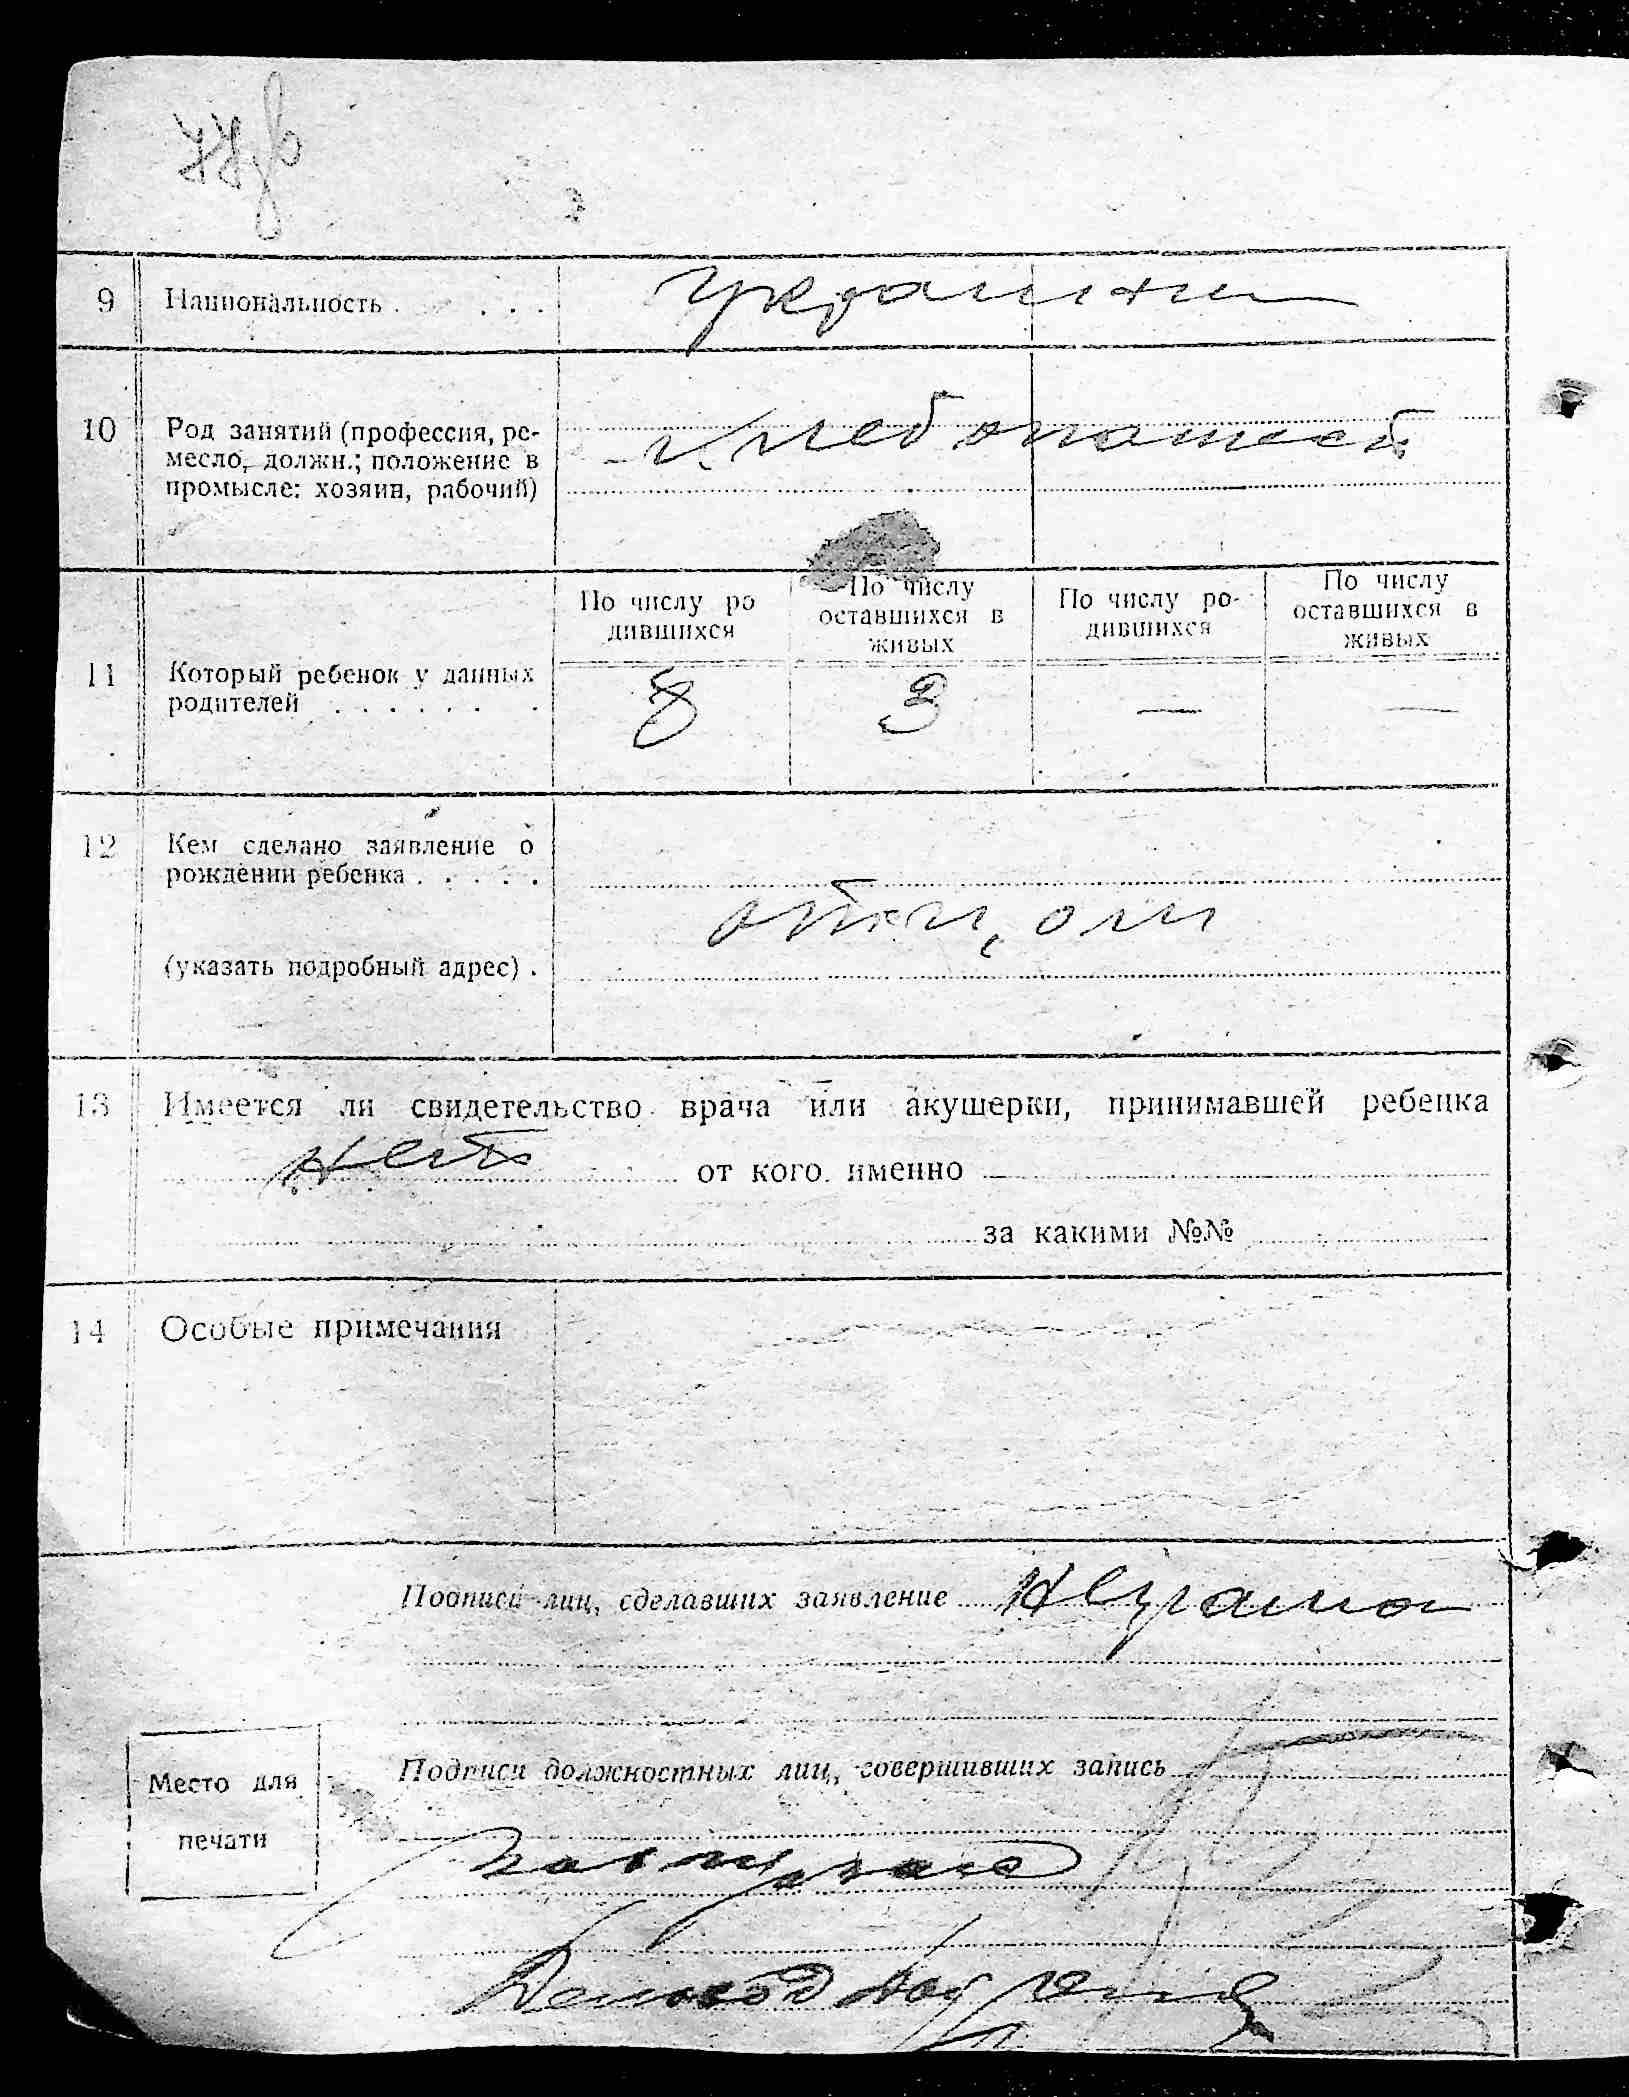 9 Национальность . . . .
украинцы
10 Род занятий (профессия, ре-
месло, должн.; положение в
промысле: хозяин, рабочий)
хлебопашест.
11 Который ребенок у данных
родителей . . . . . . .
По числу ро
дившихся
По числу
оставшихся в
живых
По числу ро-
дившихся
По числу
оставшихся в
живых
8 3 — —
12 Кем сделано заявление о
рождении ребенка . . . . .
отец,
(указать подробный адрес) .
13 Имеется ли свидетельство врача или акушерки, принимавшей ребенка
нет от кого именно
за какими №№
14 Особые примечания
Подписи лиц, сделавших заявление Неграмот
Подписи должностных лиц, совершивших запись
Место для
печати
Деловод